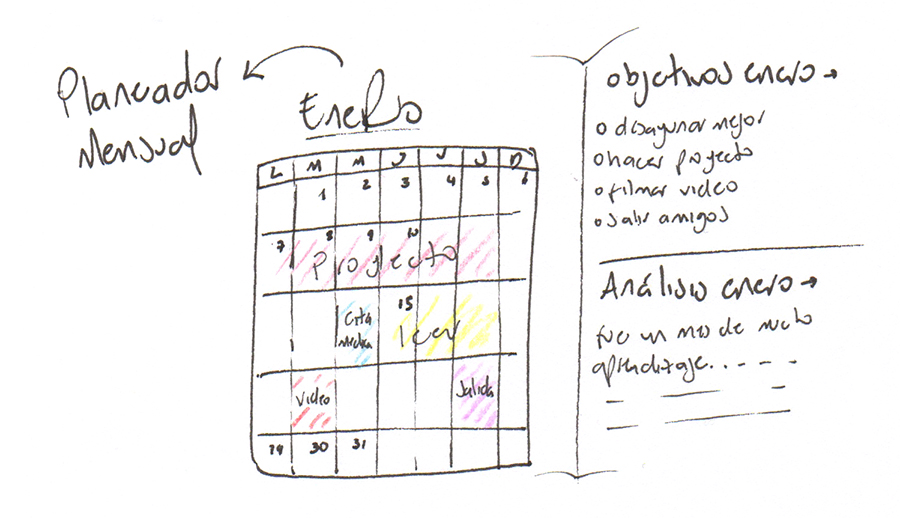 Planeador
Mensual
Enero
L M M J V S D
1 2 3 4 5 6
7 8 9 10
Proyecto
Cita
Médica
15
Leer
Video
Salida
29 30 31
Objetivos enero →
o disayunar mejor
o hacer proyecto
o filmar video
o salir amigos
Análisis enero →
fue un mes de mucho
aprendizaje. . - - - -